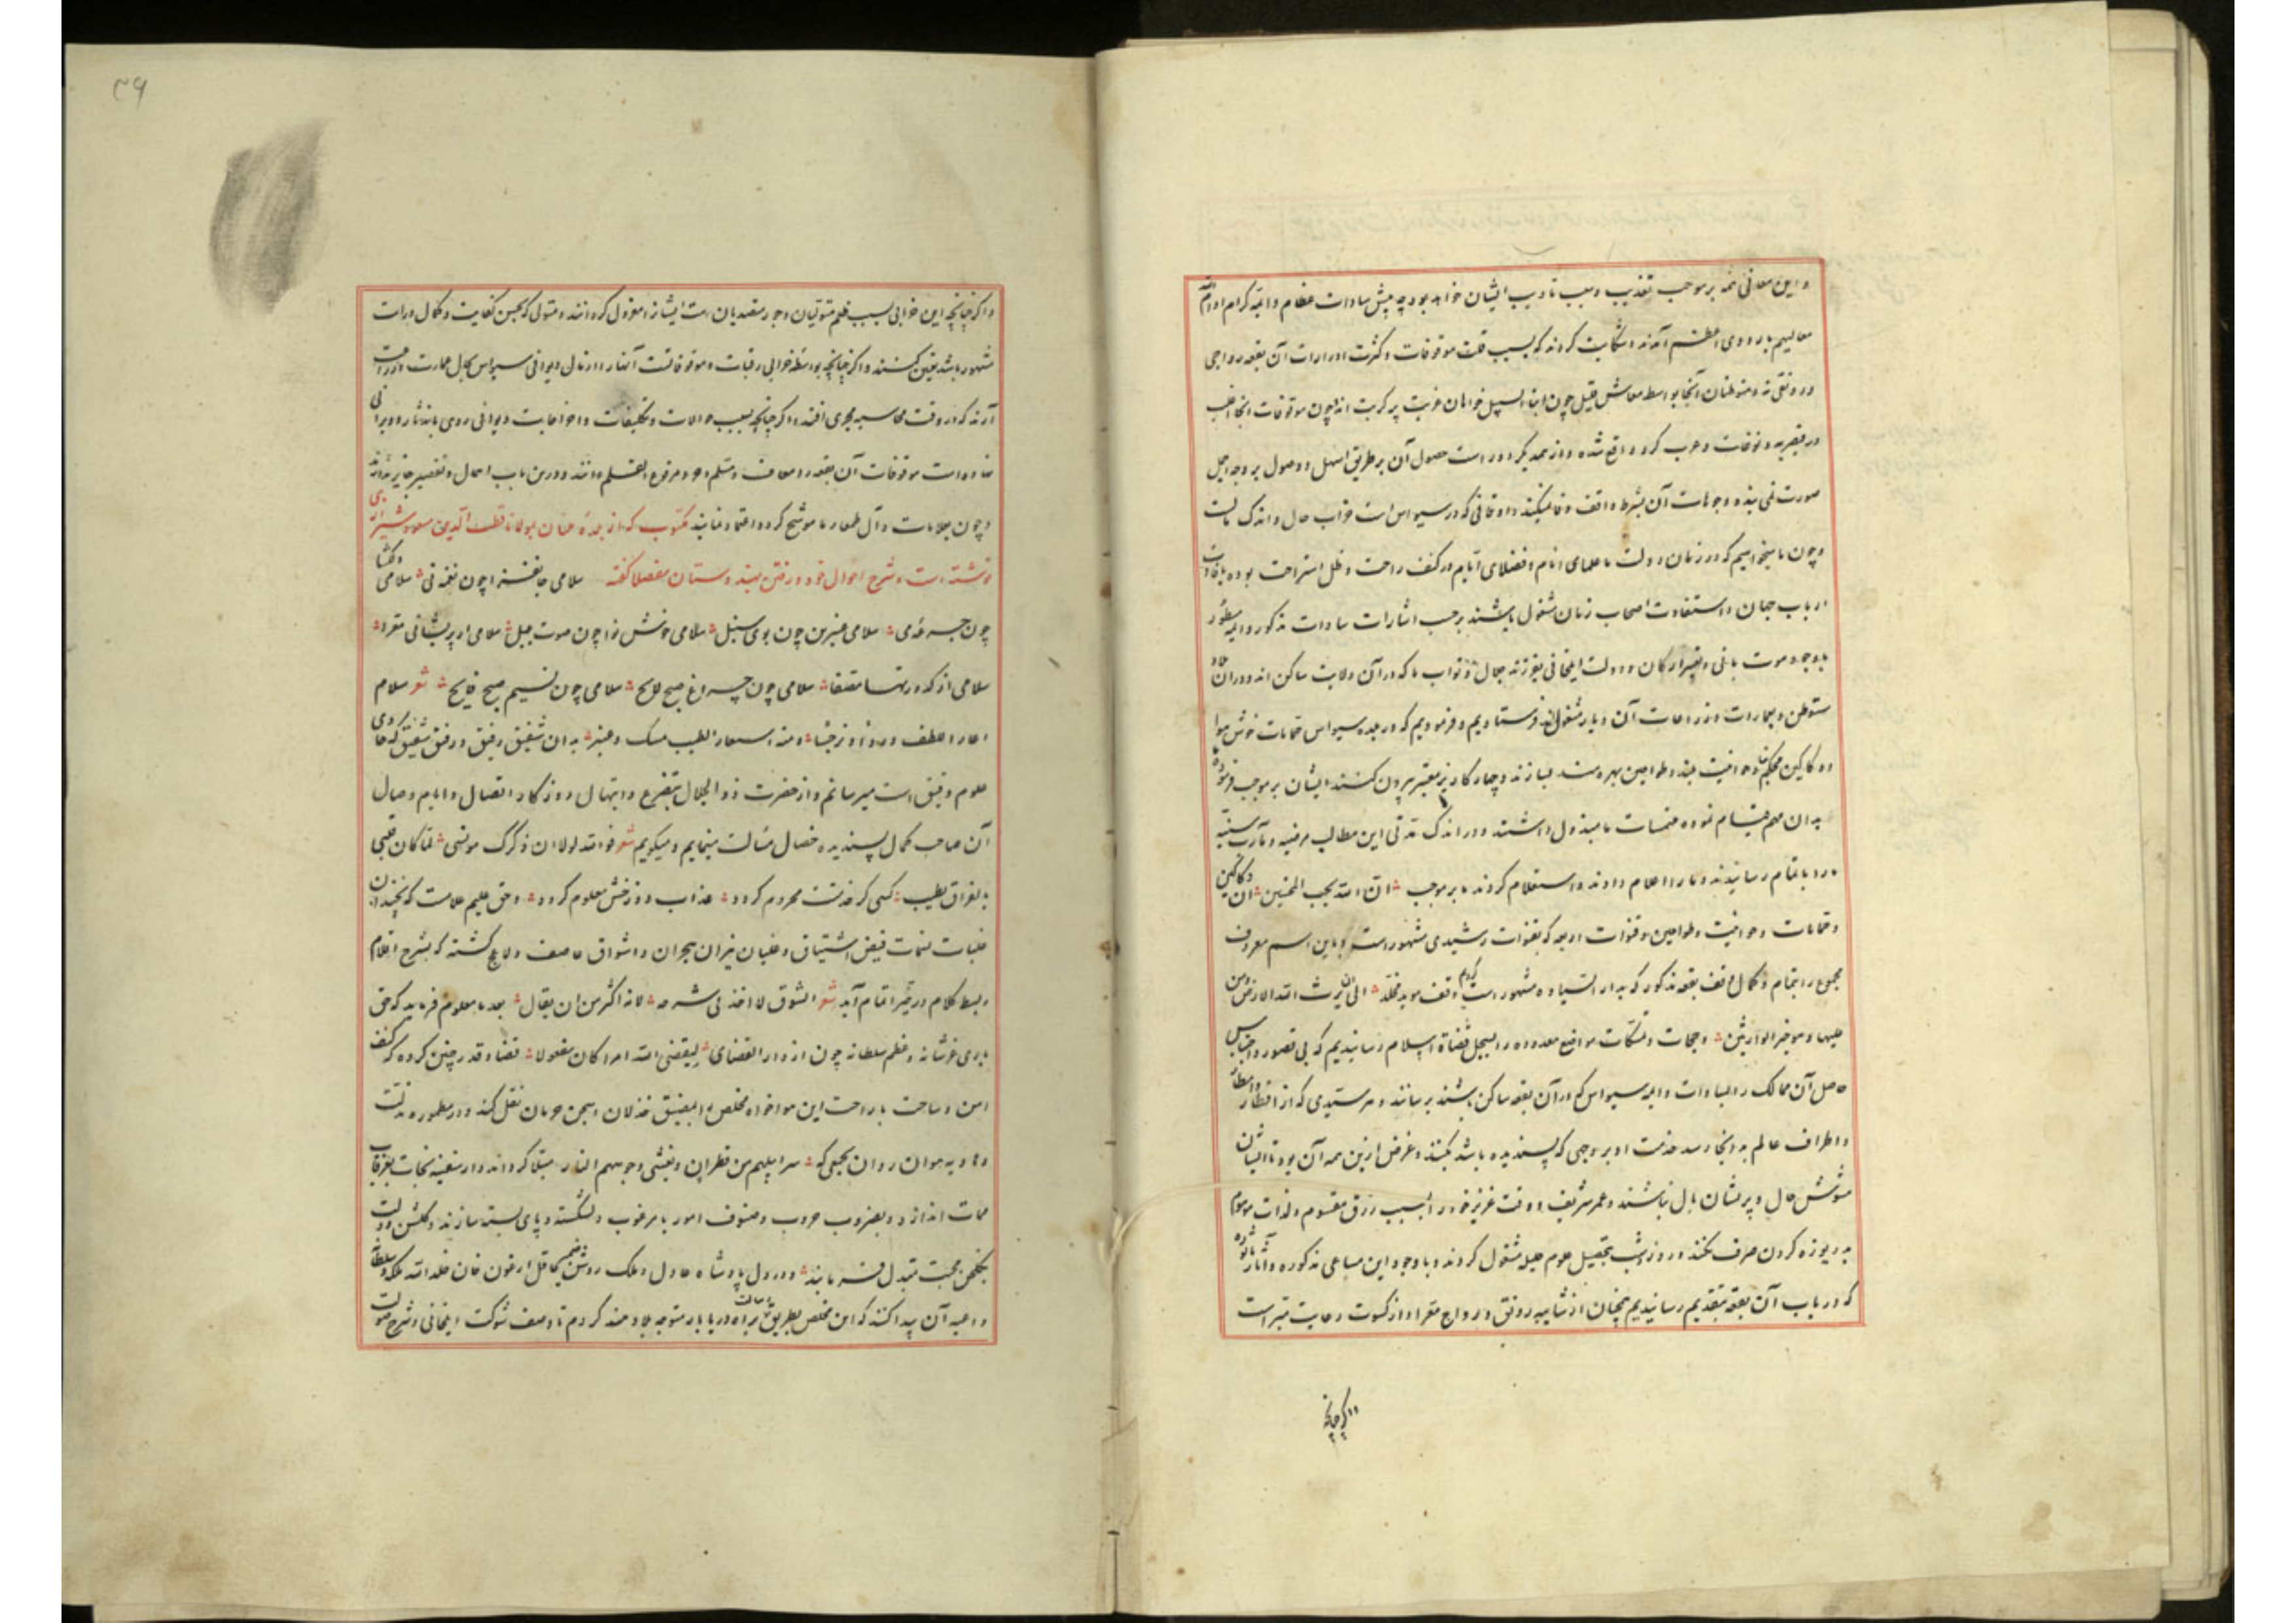 و این معانی همه بر موجب تعذیب و سبب تادیب ایشان خواهد بود چه پیش سادات عظام و ائمه کرام ادام الله
معالیهم باردوی اعظم آمدند و شکایت کردند که بسبب قلت موقوفات و کثرت ادرارات آن بقعه رواجی
و رونقی نه و متوطنان آنجا بواسطه معاش قلیل چون ابناء السبیل خواهان غربت پر کربت اند چون موقوفات آنجا اغلب
در قیصریه و توقات و عرب کرد واقع شده و از همدیگر دور است حصول آن بر طریق اسهل و وصول بر وجه اجمل
صورت نمی بندد و وجوهات آن بشرط واقف وفا نمیکند و اوقافی که در سیواس است خراب حال و اندک مالست
و چون ما میخواهیم که در زمان دولت ما علمای انام و فضلای ایام در کنف راحت و ظل استراحت بوده بافادت
ارباب جهان و استفادت اصحاب زمان مشغول باشند بر حسب اشارات سادات مذکور و ائمه مسطور
باوجود موت باغی و تغییر ارکان دولت ایلخانی بفرزند جلال و نواب ما که در آن ولایت ساکن اند و در آن بلاد
متوطن و بعمارات و زراعات آن دیار مشغول اند فرستادیم و فرمودیم که در بلده سیواس حمامات خوش هوا
و دکاکین محکم بنا و حوانیت چند و طواحین بهره مند بسازند و چهار کاریز معتبر بیرون کنند ایشان بر موجب فرموده ما
بدان مهم قیام نموده ملتمسات ما مبذول داشتند و در اندک مدتی این مطالب مرضیه و مآرب سنیه
ما را باتمام رسانیدند و ما را اعلام دادند و استعلام کردند ما بر موجب ان الله یحب المحسنین آن دکاکین
و حمامات و حوانیت و طواحین و قنوات اربعه که بقنوات رشیدی مشهور است و باین اسم معروف
مجموع را بتمام و کمال وقف بقعه مذکور که بدار السیاده مشهور است کردم وقف موبد مخلد الی ان یرث الله الارض و من
علیها و هو خیر الوارثین و حجات و تمسکات مواضع معدوده را بسجل قضاة اسلام رسانیدیم که بی قصور و احتباس
حاصل آن ممالک را بسادات و ائمه سیواس که در آن بقعه ساکن باشند برسانند و هر مستعدی که از اقطار و امصار
و اطراف عالم بدانجا رسد خدمت او بر وجهی که پسندیده باشد بکنند و غرض ازین همه آن بود تا ایشان
مشوش حال و پریشان بال نباشند و عمر شریف و وقت عزیز خود را بسبب رزق مقسوم و لذات موهوم
بدریوزه کردن صرف نکنند و روز و شب بتحصیل علوم جلیله مشغول گردند و با وجود این مساعی مذکوره و آثار ماثوره
که در باب آن بقعه بتقدیم رسانیدیم همچنان از شایبه رونق و رواج معرا و از کسوت رعایت مبراست
و اگر چنانچه
و اگر چنانچه این خرابی بسبب ظلم متولیان و جور متصدیان است ایشانرا معزول گردانند و متولی که بحسن کفایت و کمال درایت
مشهور باشد تعیین کنند و اگر چنانچه بواسطه خرابی رقبات و موقوفاتست آنها را از مال دیوانی سیواس بحال عمارت و زراعت
آرند که در وقت محاسبه مجری افتد و اگر چنانچه بسبب حوالات و تکلیفات و اخراجات دیوانی روی باندثار و ویرانی
نهاده است موقوفات آن بقعه را معاف و مسلم و مرفوع القلم دانند و درین باب اهمال و تقصیر جایز ندانند
و چون بعلامات و آل طمغاء ما موشح گردد اعتماد نمایند مکتوب که از بلده ملتان بمولانا قطب الدین مسعود شیرازی
نوشته است و شرح احوال خود و رفتن بهندوستان مفصلا گفته سلامی جانفزا چون نغمه نی سلامی دلگشا
چون جرعه می سلامی عنبرین چون بوی سنبل سلامی خوش نوا چون صوت بلبل سلامی از پریشانی مفرد
سلامی از کدورتها مصفا سلامی چون چراغ صبح لایح سلامی چون نسیم صبح فایح شعر سلام
اعار اللطف وردا و نرجسا و منه استعار الطیب مسک و عنبر بدان شفیق رفیق و رفیق شفیق که حاوی
علوم دقیق است میرسانم و از حضرت ذو الجلال بتضرع و ابتهال روزگار اتصال و ایام وصال
آن صاحب کمال پسندیده خصال مسألت مینمایم و میگویم شعر فوالله لولا ان ذکرک مونسی لما کان قلبی
بالفراق یطیب کسی کز خدمتت محروم گردد عذاب دوزخش معلوم گردد و حق علیم علامست که نه چندان
غلبات سمات فیض اشتیاق و غلیان نیران هجران و اشواق عاصف و لاعج گشته که بشرح اقلام
و بسط کلام در حیز اتمام آید شعر الشوق لا اخذ فی شرحه لانه اکثر من ان یقال بعد ما معلوم فرماید که حق
باری عز شانه و عظم سلطانه چون از دار القضای لیقضی الله امرا کان مفعولا قضا و قدر چنین کرده که کنف
امن و ساحت با راحت این هواخواه مخلص را بمضیق خذلان و سجن حرمان نقل کند و در مطموره مذلت
و هاویه هوان روان بجمعی که سرابیلهم من قطران و تغشی وجوههم النار مبتلا گرداند و از سفینه نجات بغرقاب
ممات اندازد و بضروب حروب و صنوف امور نامرغوب دلشکسته و پای بسته سازند و گلشن دولت
بگلخن محنت متبدل فرمایند و در دل پادشاه عادل و ملک روشن ضمیر کامل ارغون خان خلد الله ملکه و سلطانه
داعیه آن پیدا کند که این مخلص بطریق رسالت براه دریابار متوجه بلاد هند گردم تا وصف شوکت ایلخانی و شرح صولت